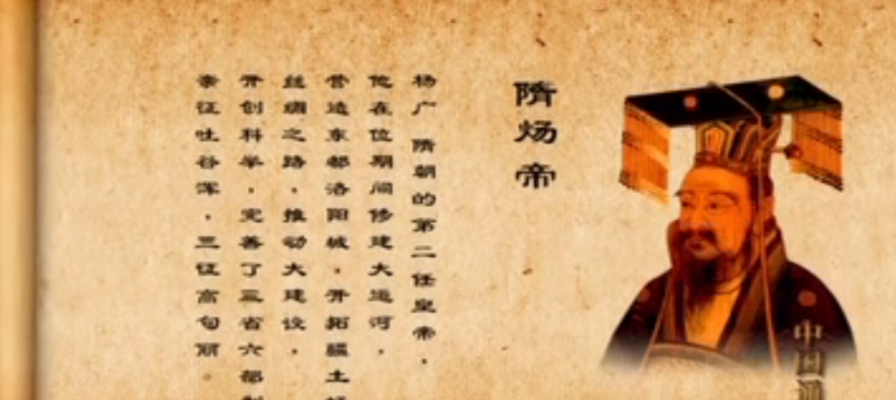 隋炀帝
杨广 隋朝的第二任皇帝，
他在位期间修建大运河，
营造东都洛阳城，开拓疆土
丝绸之路，推动大建设，
开创科举，完善了三省六部
亲征吐谷浑，三征高句丽。
中国